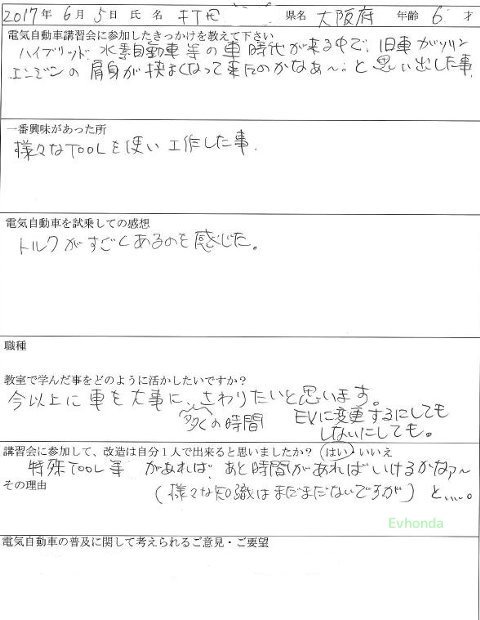 2017年 6月 5日 氏 名 県名 大阪府 年齢 6 才
電気自動車講習会に参加したきっかけを教えて下さい
ハイブリッド 水素自動車等の車時代が来る中で、旧車ガソリン
エンジンの肩身が狭まくなって来たのかなあ〜。と思い出した事
一番興味があった所
様々なTOOLを使い工作した事.
電気自動車を試乗しての感想
トルクがすごくあるのを感じた。
職種
教室で学んだ事をどのように活かしたいですか?
今以上に車を大事に、さわりたいと思います。
多くの時間 EVに変更するにしても
しないにしても。
講習会に参加して、改造は自分1人で出来ると思いましたか? (はい) いいえ
特殊TOOL等 があれば、あと時間があればいけるかなァ〜
その理由 (様々な知識はまだまだないですが) と....。
Evhonda
電気自動車の普及に関して考えられるご意見・ご要望